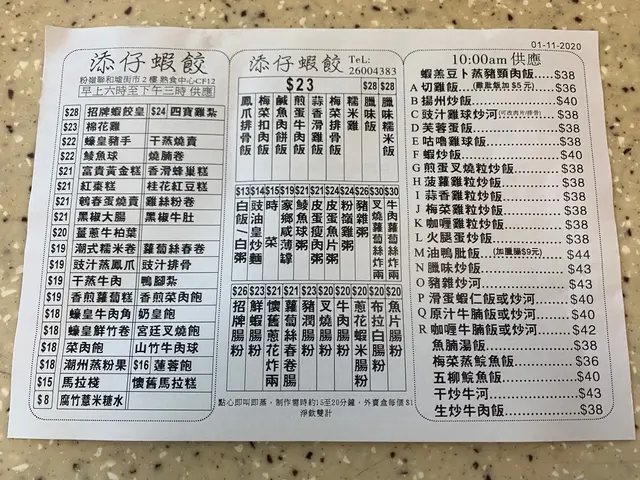 添仔蝦餃
粉嶺聯和墟街市2樓 熟食中心CF12
早上六時至下午三時 供應
$28 招牌蝦餃皇 $24 四寶雞紮
$23 棉花雞
$22 蠔皇豬手 干蒸燒賣
$22 鯪魚球 燒腩卷
$21 富貴黃金糕 香滑蜂巢糕
$21 紅棗糕 桂花紅豆糕
$21 鵪春蛋燒賣 雞絲粉卷
$21 黑椒大腸 黑椒牛肚
$20 薑蔥牛柏葉
$19 潮式糯米卷 蘿蔔絲春卷
$19 豉汁蒸鳳爪 豉汁排骨
$19 干蒸牛肉 鴨腳紮
$19 香煎蘿蔔糕 香煎菜肉飽
$18 蠔皇牛肉角 奶皇飽
$18 蠔皇鮮竹卷 宮廷叉燒飽
$18 菜肉飽 山竹牛肉球
$18 潮州蒸粉果 $16 蓮蓉飽
$15 馬拉棧 懷舊馬拉糕
$8 腐竹薏米糖水
添仔蝦餃 TeL: 26004383
$23
鳳爪排骨飯
梅菜扣肉飯
鹹魚肉餅飯
煎蛋牛肉飯
蒜香滑雞飯
梅菜排骨飯
糯米雞
$28 臘味飯
$28 臘味糯米飯
$13 白飯/白粥
$14 豉油皇炒麵
$15 時菜
$19 家鄉咸薄罉
$21 鯪魚球粥
$21 皮蛋瘦肉粥
$24 皮蛋魚片粥
$24 粉嶺雞粥
$26 豬雜粥
$30 叉燒蘿蔔絲炸兩
$30 牛肉蘿蔔絲炸兩
$26 招牌腸粉
$23 鮮蝦腸粉
$21 懷舊蔥花炸兩
$21 蘿蔔絲春卷腸
$23 豬潤腸粉
$20 叉燒腸粉
$20 牛肉腸粉
$20 蔥花蝦米腸粉
$20 布拉白腸粉
$20 魚片腸粉
點心即叫即蒸，制作需時約15至20分鐘，外賣盒每個$1
淨飲雙計
01-11-2020
10:00am 供應
蝦羔豆卜蒸豬頸肉飯.....$38
A 切雞飯 (雞批飯加 $5 元)....$36
B 揚州炒飯......$40
C 豉汁雞球炒河......$38
D 芙蓉蛋飯......$38
E 咕嚕雞球飯......$38
F 蝦炒飯......$40
G 煎蛋叉燒粒炒飯......$38
H 菠蘿雞粒炒飯......$38
I 蒜香雞粒炒飯......$38
J 梅菜雞粒炒飯......$38
K 咖喱雞粒炒飯......$38
L 火腿蛋炒飯......$38
M 油鴨肶飯 (加臘腸$9元)....$44
N 臘味炒飯......$43
O 豬雜炒河......$43
P 滑蛋蝦仁飯或炒河....$40
Q 原汁牛腩飯或炒河....$40
R 咖喱牛腩飯或炒河....$42
魚腩湯飯......$38
梅菜蒸鯇魚飯......$36
五柳鯇魚飯......$40
干炒牛河......$43
生炒牛肉飯......$38